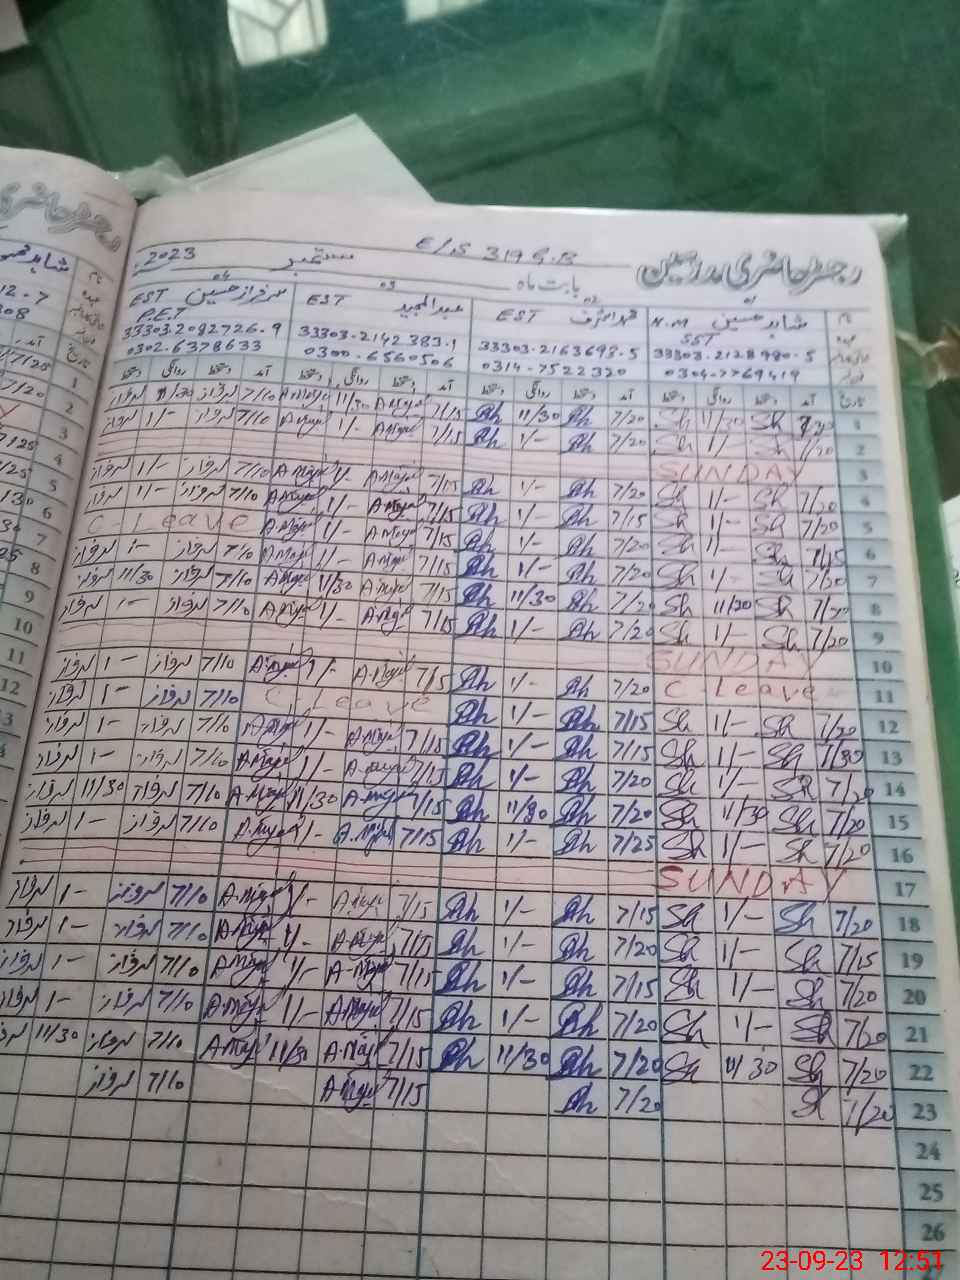 رجسٹر حاضری مدرسین
E/S 319 G.B
بابت ماہ ستمبر 2023
01 02 03 04
نام شاہد حسین H.M محمد اشرف EST عبدالمجید EST سرفراز حسین EST
عہدہ SST P.E.T
33303-2128990-5 33303-2163698-5 33303-2142383-1 33303-2092726-9
0304-7769419 0314-7522320 0300-6560506 0302-6378633
تاریخ آمد دستخط روانگی دستخط آمد دستخط روانگی دستخط آمد دستخط روانگی دستخط آمد دستخط روانگی دستخط
1 Sh 11/30 Sh 7/20 Ah 11/30 Ah 7/15 A.Majid 11/30 A.Majid 7/10 سرفراز 11/30 سرفراز
2 7/20 Sh 1/- Sh 7/20 Ah 1/- Ah 7/15 A.Majid 1/- A.Majid 7/10 سرفراز 1/- سرفراز
3 SUNDAY
4 7/20 Sh 1/- Sh 7/20 Ah 1/- Ah 7/15 A.Majid 1/- A.Majid 7/10 سرفراز 1/- سرفراز
5 7/20 Sh 1/- Sh 7/15 Ah 1/- Ah 7/15 A.Majid 1/- A.Majid 7/10 سرفراز 1/- سرفراز
6 7/15 Sh 1/- Sh 7/20 Ah 1/- Ah 7/15 A.Majid 1/- A.Majid C-Leave
7 7/20 Sh 1/- Sh 7/20 Ah 1/- Ah 7/15 A.Majid 1/- A.Majid 7/10 سرفراز 1- سرفراز
8 7/20 Sh 11/20 Sh 7/20 Ah 11/30 Ah 7/15 A.Majid 11/30 A.Majid 7/10 سرفراز 11/30 سرفراز
9 7/20 Sh 1/- Sh 7/20 Ah 1/- Ah 7/15 A.Majid 1/- A.Majid 7/10 سرفراز 1- سرفراز
10 SUNDAY
11 C-Leave 7/20 Ah 1/- Ah 7/15 A.Majid 1/- A.Majid 7/10 سرفراز 1- سرفراز
12 7/20 Sh 1/- Sh 7/15 Ah 1/- Ah C-Leave 7/10 سرفراز 1- سرفراز
13 7/30 Sh 1/- Sh 7/15 Ah 1/- Ah 7/15 A.Majid 1/- A.Majid 7/10 سرفراز 1- سرفراز
14 7/20 Sh 1/- Sh 7/20 Ah 1/- Ah 7/15 A.Majid 1/- A.Majid 7/10 سرفراز 1- سرفراز
15 7/20 Sh 11/30 Sh 7/20 Ah 11/30 Ah 7/15 A.Majid 11/30 A.Majid 7/10 سرفراز 11/30 سرفراز
16 7/20 Sh 1/- Sh 7/25 Ah 1/- Ah 7/15 A.Majid 1/- A.Majid 7/10 سرفراز 1- سرفراز
17 SUNDAY
18 7/20 Sh 1/- Sh 7/15 Ah 1/- Ah 7/15 A.Majid 1/- A.Majid 7/10 سرفراز 1- سرفراز
19 7/15 Sh 1/- Sh 7/20 Ah 1/- Ah 7/15 A.Majid 1/- A.Majid 7/10 سرفراز 1- سرفراز
20 7/20 Sh 1/- Sh 7/15 Ah 1/- Ah 7/15 A.Majid 1/- A.Majid 7/10 سرفراز 1- سرفراز
21 7/20 Sh 1/- Sh 7/20 Ah 1/- Ah 7/15 A.Majid 1/- A.Majid 7/10 سرفراز 1- سرفراز
22 7/20 Sh 11/30 Sh 7/20 Ah 11/30 Ah 7/15 A.Majid 11/30 A.Majid 7/10 سرفراز 11/30
23 7/20 Sh 7/20 Ah 7/15 A.Majid 7/10 سرفراز
24
25
26
رجسٹر حاضری
شاہد
نام
عہدہ
تاریخ
آمد
1
2
3
4
5
6
7
8
9
10
11
12
13
23-09-23 12:51